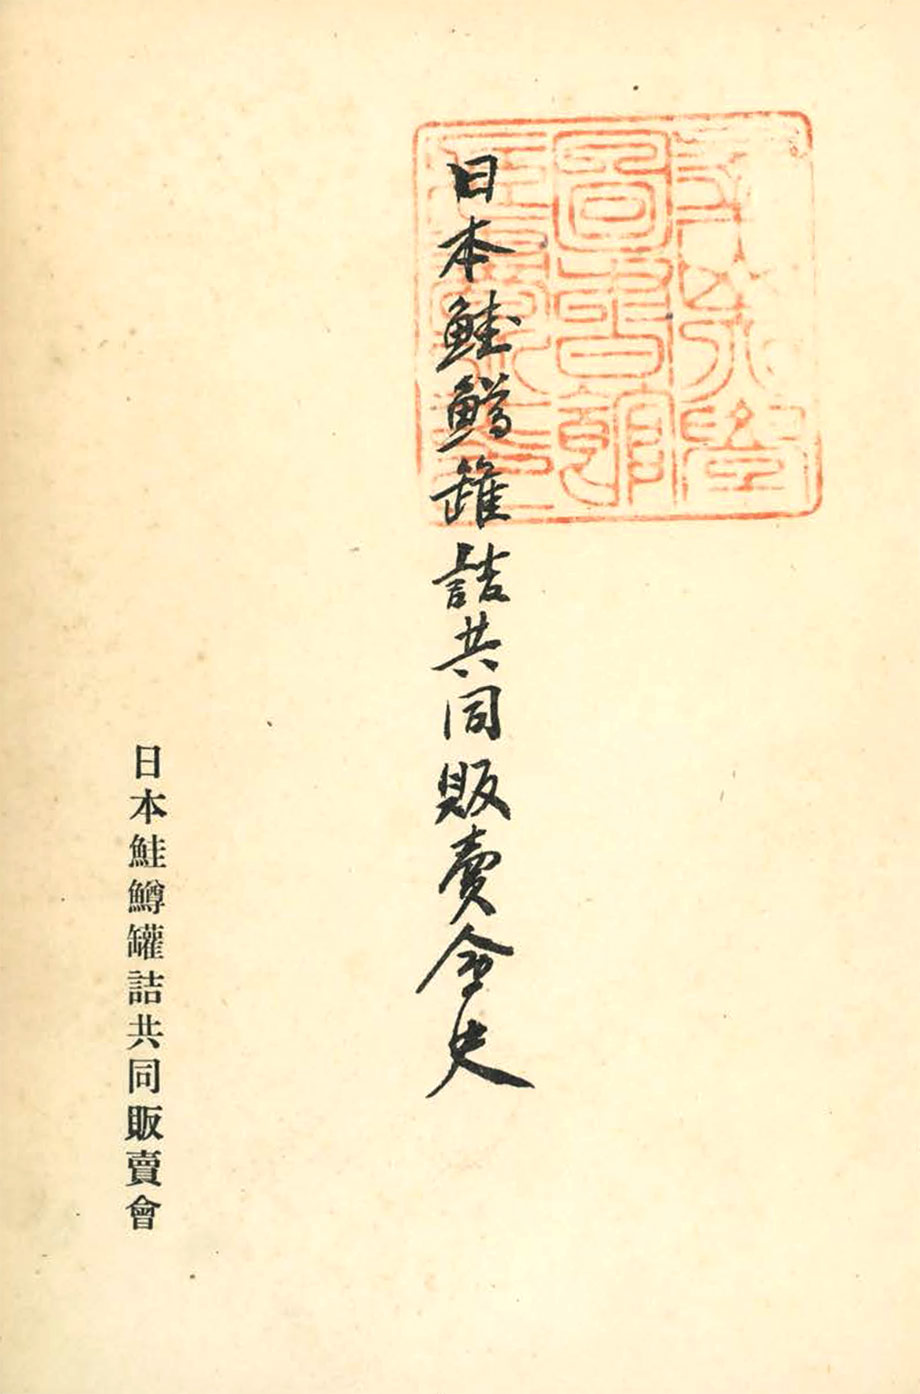 圖書館
日本鮭鱒罐詰共同販賣會史
日本鮭鱒罐詰共同販賣會